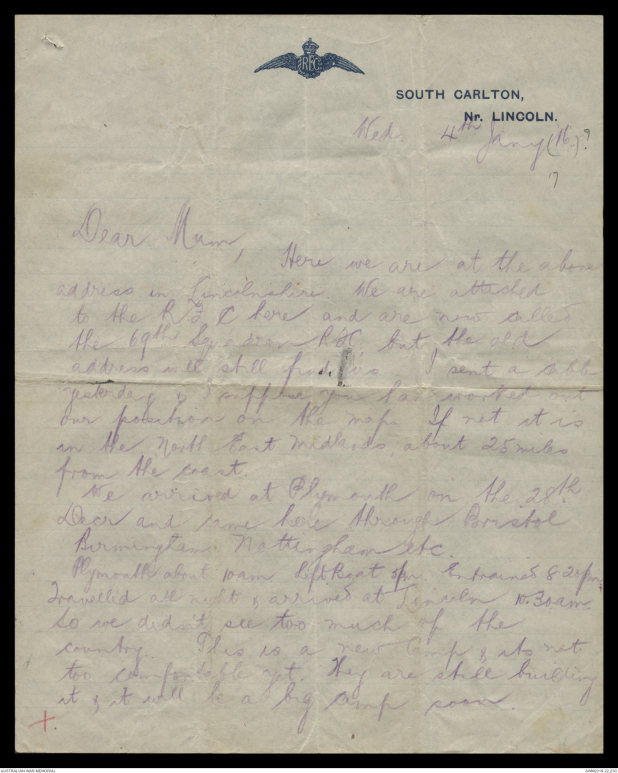 RFC
SOUTH CARLTON,
Nr. LINCOLN.
Wed. 4th Jany (16.)?
7
Dear Mum,
Here we are at the above
address in Lincolnshire. We are attached
to the R F C here and are now called
the 69th Squadron RFC but the old
address will still find us. I sent a cable
yesterday & I suppose you have worked out
our position on the map. If not it is
in the North East Midlands about 25 miles
from the coast.
We arrived at Plymouth on the 28th
Decr and came here through Bristol
Birmingham Nottingham etc.
Plymouth about 10am left Boat 5pm Entrained 8.20pm.
Travelled all night & arrived at Lincoln 10.30am.
So we didn't see too much of the
country. This is a new Camp & its not
too comfortable yet. They are still building
it & it will be a big camp soon.
+.
AUSTRALIAN WAR MEMORIAL